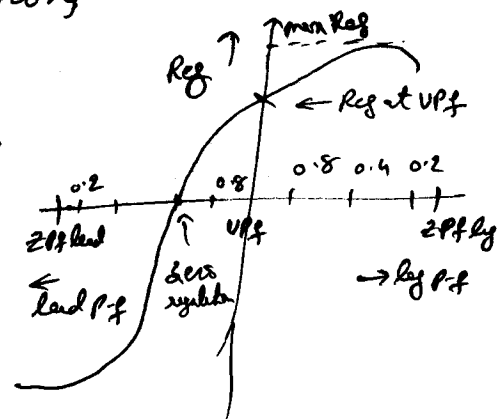 max Reg
Reg
← Reg at UPf
0.2
0.8
0.8
0.4
0.2
ZPf lead
UPf
ZPf lag
←
lead P-f
zero
regulation
→ lag P-f